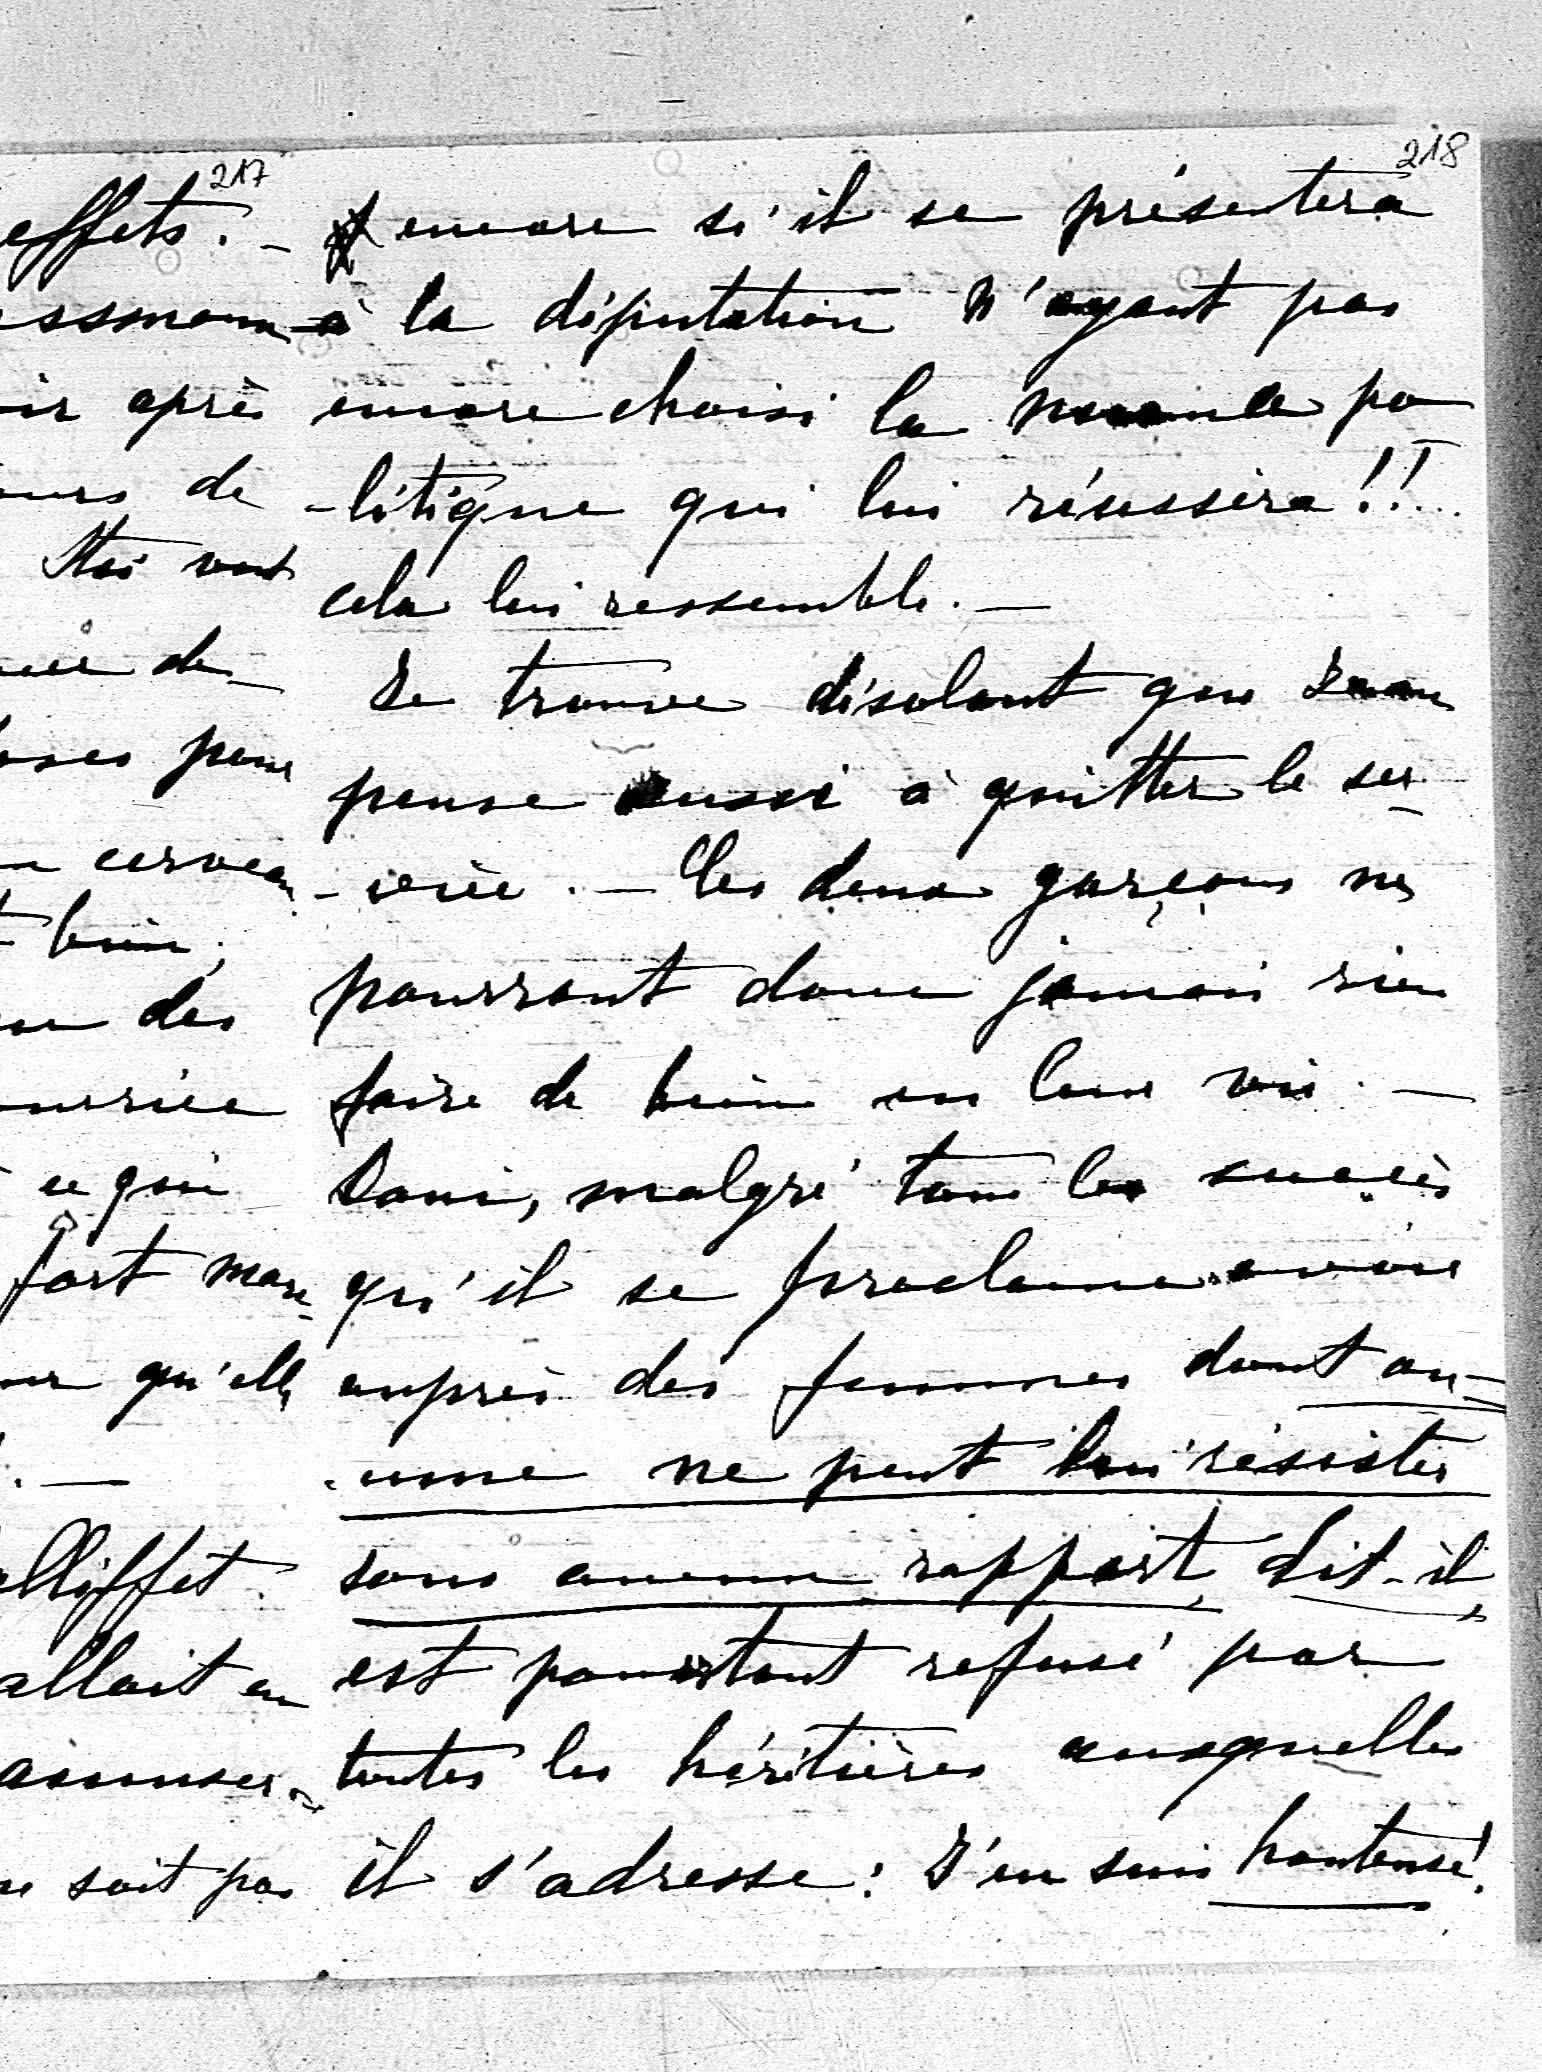 217
effets. -
ssmann
ir après
ours de
Moi vont
de
oses pour
cerveau
bien,
des
ourrice
ce qui
fort mau-
qu'elle
. —
alliffet
allait en
amuser
soit pas
218
encore s'il se présentera
à la députation n'ayant pas
encore choisi la nuance po
-litique qui lui réussira!!...
cela lui ressemble. —
Je trouve désolant que Jean
pense aussi à quitter le ser-
-vice. — Ces deux garçons ne
pourront donc jamais rien
faire de bien en leur vie. —
Dani, malgré tous les succès
qu'il se proclame avoir
auprès des femmes dont au=
-cune ne peut lui résister
sous aucun rapport, dit-il,
est pourtant refusé par
toutes les héritières auxquelles
il s'adresse: J'en suis honteuse!